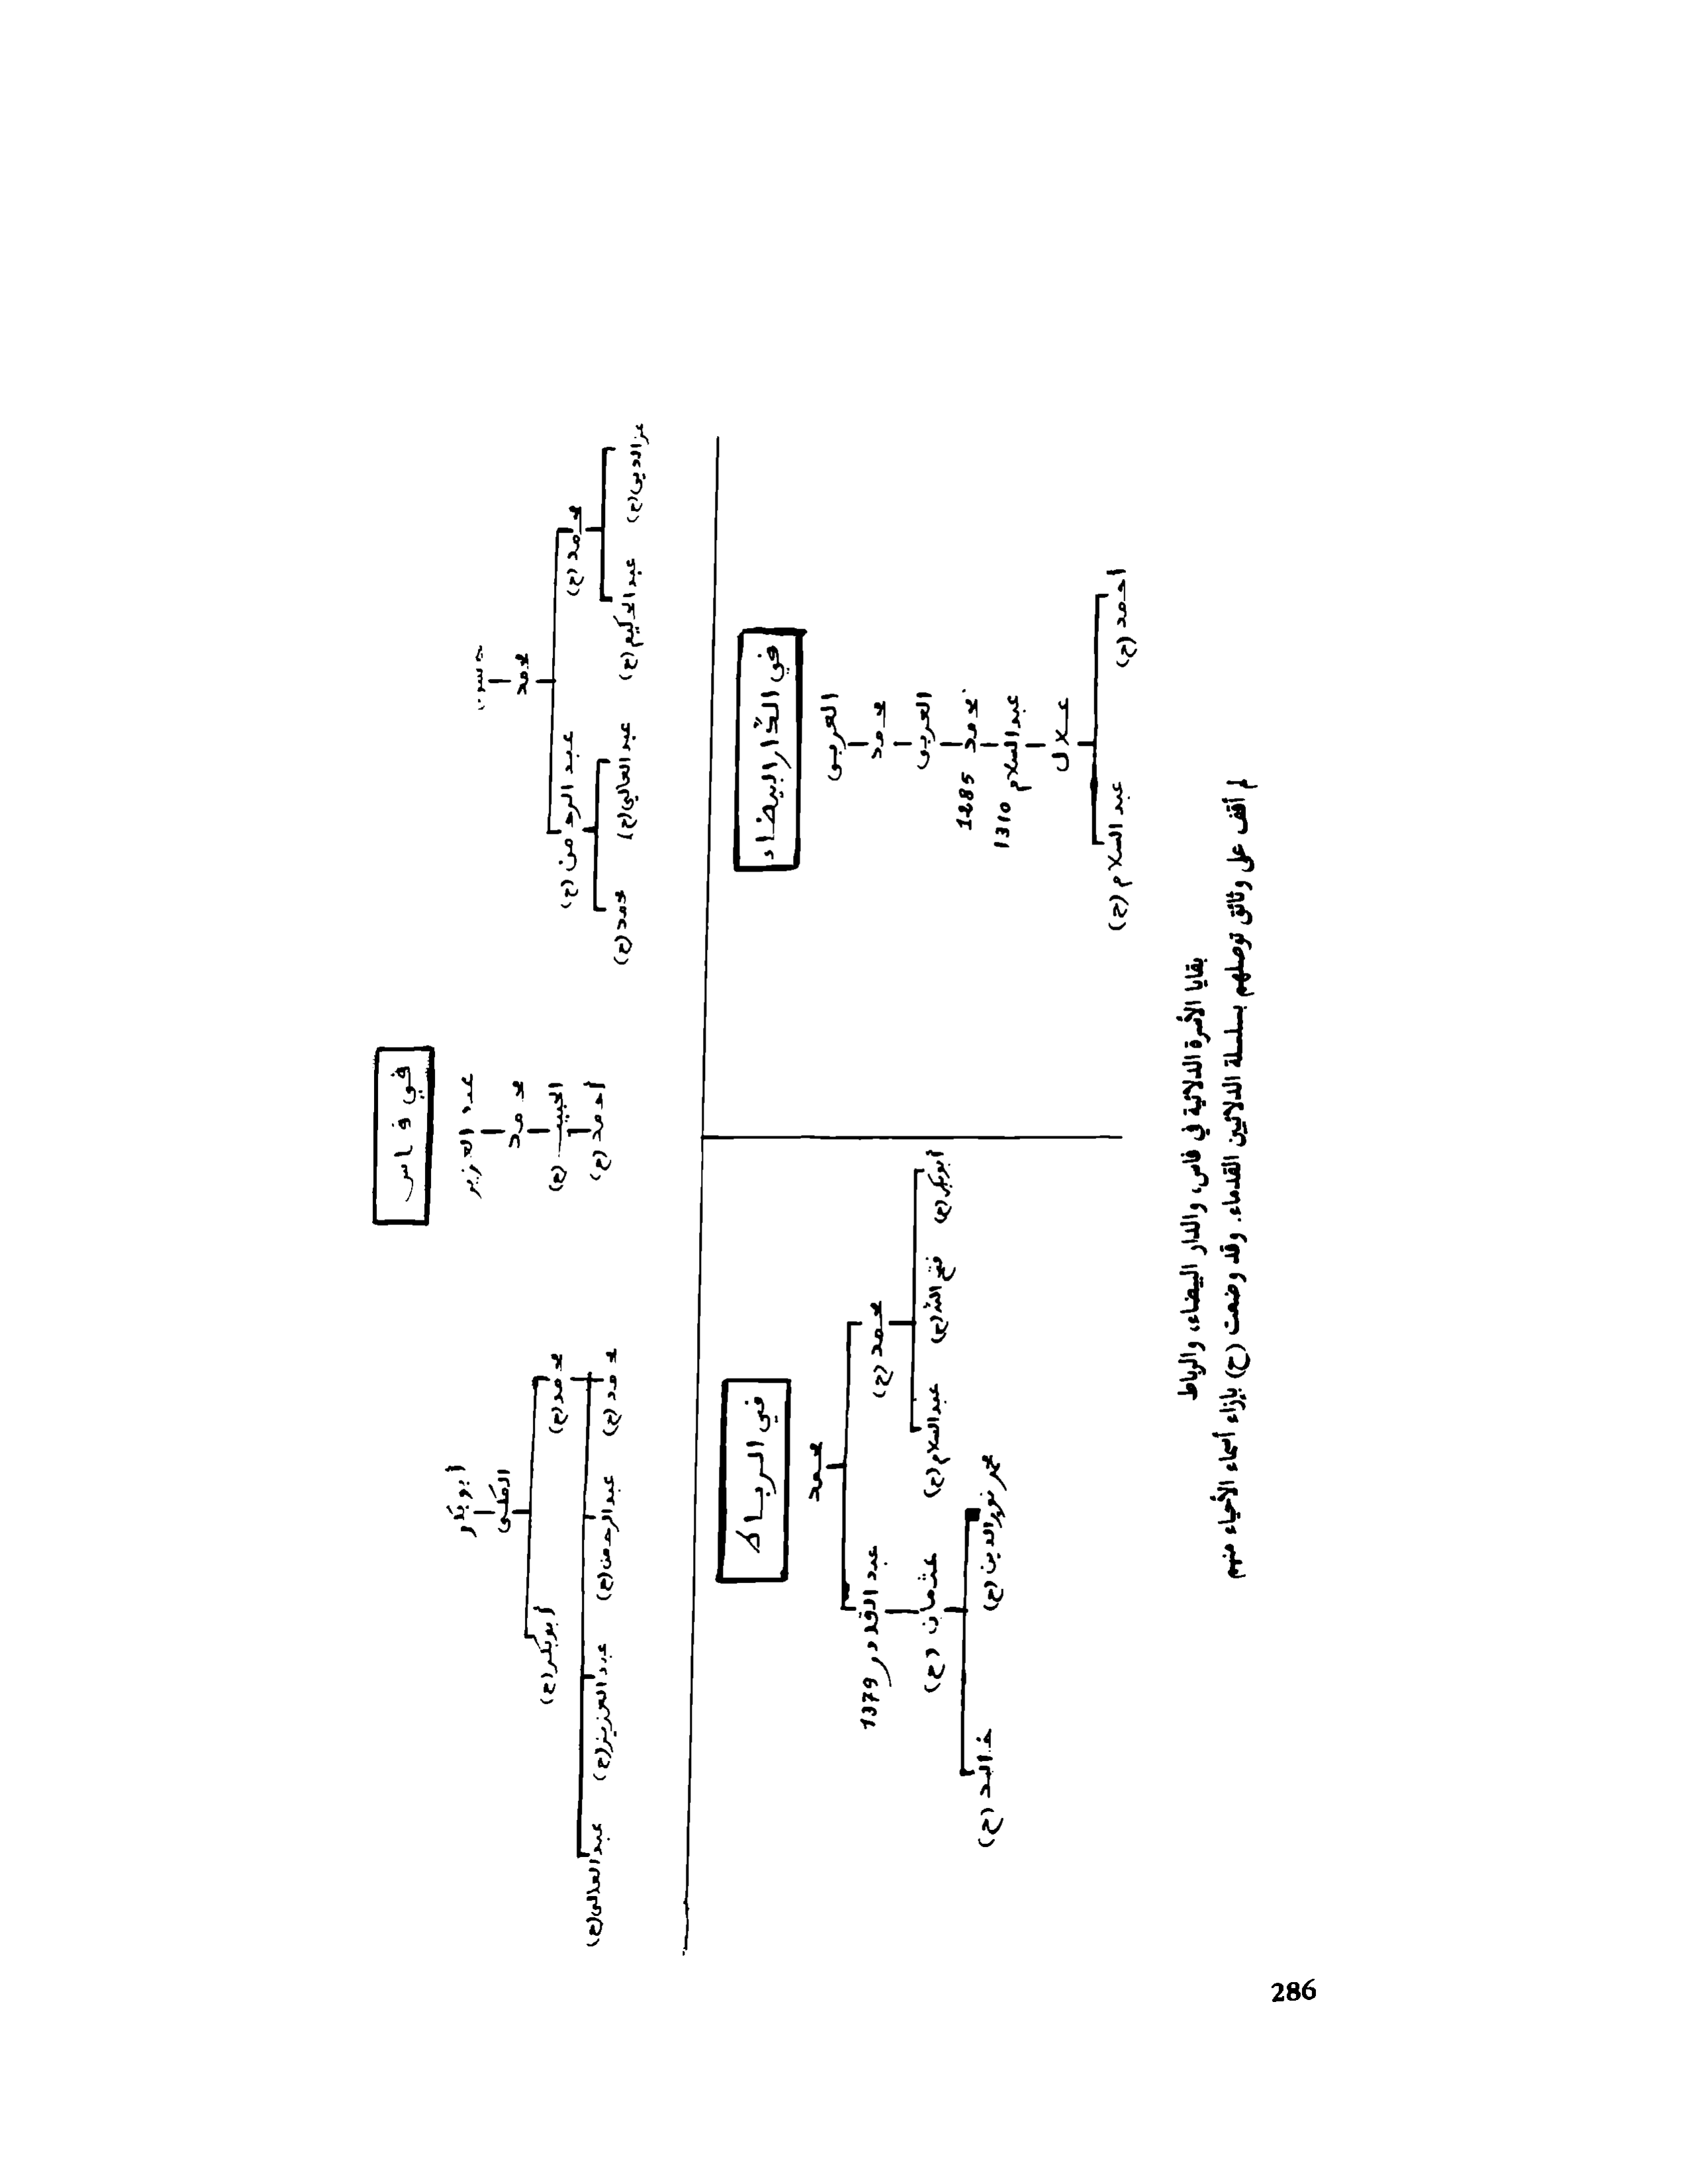 في فاس
حسن
محمد
محمد (ح)
عبد الرحمن (ح)
عز الدين (ح)
عبد الحكيم (ح)
عبد العالي (ح)
محمد (ح)
عبد العزيز
محمد
الحبيب (ح)
أحمد (ح)
أبو بكر
المكي
محمد (ح)
أبو بكر (ح)
محمد (ح)
عبد الرحمن (ح)
عبد العزيز (ح)
عبد العالي (ح)
في الدّار البيضاء
العربي
محمد
العربي
محمد 1285
عبد السلام 1310
علال
أحمد (ح)
عبد السلام (ح)
في الرباط
محمد
محمد (ح)
عبد القادر 1379
أبو بكر (ح)
فتح الله (ح)
عبد السلام (ح)
عثمان (ح)
محمد نور الدين (ح)
خالد (ح)
بقايا الأسرة الدلائية في فاس، والدار البيضاء، والرباط
لم أقف على وثائق توصلهم بسلسلة الدلائيين القدماء. وقد وضعت (ح) بإزاء أسماء الأحياء منهم
286